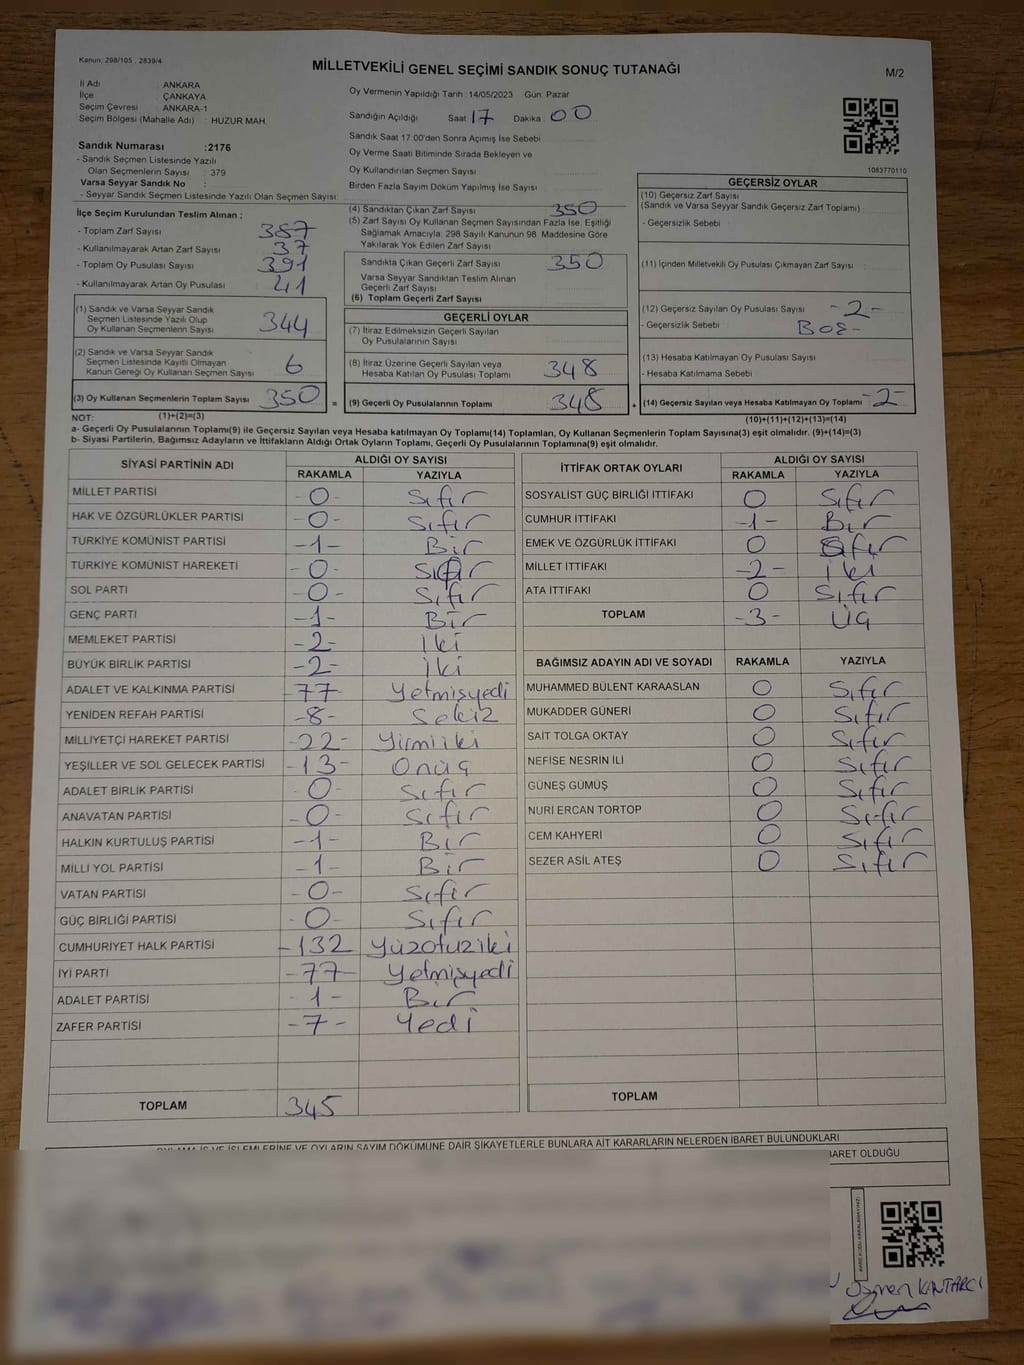 Kanun, 298/105 , 2839/4
MİLLETVEKİLİ GENEL SEÇİMİ SANDIK SONUÇ TUTANAĞI
M/2
İl Adı ANKARA
İlçe ÇANKAYA
Seçim Çevresi : ANKARA-1
Seçim Bölgesi (Mahalle Adı) : HUZUR MAH.
Oy Vermenin Yapıldığı Tarih : 14/05/2023 Gün: Pazar
Sandığın Açıldığı Saat 17 Dakika : 00
Sandık Saat 17:00'den Sonra Açımış İse Sebebi
Oy Verme Saati Bitiminde Sırada Bekleyen ve
Oy Kullandırılan Seçmen Sayısı
Birden Fazla Sayım Döküm Yapılmış İse Sayısı
Sandık Numarası :2176
- Sandık Seçmen Listesinde Yazılı
Olan Seçmenlerin Sayısı : 379
Varsa Seyyar Sandık No :
- Seyyar Sandık Seçmen Listesinde Yazılı Olan Seçmen Sayısı :
1083770110
İlçe Seçim Kurulundan Teslim Alınan ;
- Toplam Zarf Sayısı 387
- Kullanılmayarak Artan Zarf Sayısı 37
- Toplam Oy Pusulası Sayısı 391
- Kullanılmayarak Artan Oy Pusulası 41
(1) Sandık ve Varsa Seyyar Sandık
Seçmen Listesinde Yazılı Olup
Oy Kullanan Seçmenlerin Sayısı 344
(2) Sandık ve Varsa Seyyar Sandık
Seçmen Listesinde Kayıtlı Olmayan
Kanun Gereği Oy Kullanan Seçmen Sayısı 6
(3) Oy Kullanan Seçmenlerin Toplam Sayısı 350 =
(4) Sandıktan Çıkan Zarf Sayısı 350
(5) Zarf Sayısı Oy Kullanan Seçmen Sayısından Fazla İse, Eşitliği
Sağlamak Amacıyla, 298 Sayılı Kanunun 98. Maddesine Göre
Yakılarak Yok Edilen Zarf Sayısı
Sandıkta Çıkan Geçerli Zarf Sayısı 350
Varsa Seyyar Sandıktan Teslim Alınan
Geçerli Zarf Sayısı
(6) Toplam Geçerli Zarf Sayısı
GEÇERLİ OYLAR
(7) İtiraz Edilmeksizin Geçerli Sayılan
Oy Pusulalarının Sayısı
(8) İtiraz Üzerine Geçerli Sayılan veya
Hesaba Katılan Oy Pusulası Toplamı 348
(9) Geçerli Oy Pusulalarının Toplamı 348 +
GEÇERSİZ OYLAR
(10) Geçersiz Zarf Sayısı
(Sandık ve Varsa Seyyar Sandık Geçersiz Zarf Toplamı)
- Geçersizlik Sebebi
(11) İçinden Milletvekili Oy Pusulası Çıkmayan Zarf Sayısı
(12) Geçersiz Sayılan Oy Pusulası Sayısı -2-
- Geçersizlik Sebebi
(13) Hesaba Katılmayan Oy Pusulası Sayısı
- Hesaba Katılmama Sebebi
(14) Geçersiz Sayılan veya Hesaba Katılmayan Oy Toplamı -2-
NOT: (1)+(2)=(3)
(10)+(11)+(12)+(13)=(14)
a- Geçerli Oy Pusulalarının Toplamı(9) ile Geçersiz Sayılan veya Hesaba katılmayan Oy Toplamı(14) Toplamları, Oy Kullanan Seçmenlerin Toplam Sayısına(3) eşit olmalıdır. (9)+(14)=(3)
b- Siyasi Partilerin, Bağımsız Adayların ve İttifakların Aldığı Ortak Oyların Toplamı, Geçerli Oy Pusulalarının Toplamına(9) eşit olmalıdır.
SİYASİ PARTİNİN ADI ALDIĞI OY SAYISI
RAKAMLA YAZIYLA
MİLLET PARTİSİ -0- Sıfır
HAK VE ÖZGÜRLÜKLER PARTİSİ -0- Sıfır
TÜRKİYE KOMÜNİST PARTİSİ -1- Bir
TÜRKİYE KOMÜNİST HAREKETİ -0- Sıfır
SOL PARTİ -0- Sıfır
GENÇ PARTİ -1- Bir
MEMLEKET PARTİSİ -2- İki
BÜYÜK BİRLİK PARTİSİ -2- İki
ADALET VE KALKINMA PARTİSİ -77- Yetmişyedi
YENİDEN REFAH PARTİSİ -8- Sekiz
MİLLİYETÇİ HAREKET PARTİSİ -22- Yirmiiki
YEŞİLLER VE SOL GELECEK PARTİSİ -13- Onüç
ADALET BİRLİK PARTİSİ -0- Sıfır
ANAVATAN PARTİSİ -0- Sıfır
HALKIN KURTULUŞ PARTİSİ -1- Bir
MİLLİ YOL PARTİSİ -1- Bir
VATAN PARTİSİ -0- Sıfır
GÜÇ BİRLİĞİ PARTİSİ -0- Sıfır
CUMHURİYET HALK PARTİSİ -132 Yüzotuziki
İYİ PARTİ -77- Yetmişyedi
ADALET PARTİSİ -1- Bir
ZAFER PARTİSİ -7- Yedi
TOPLAM 345
İTTİFAK ORTAK OYLARI ALDIĞI OY SAYISI
RAKAMLA YAZIYLA
SOSYALİST GÜÇ BİRLİĞİ İTTİFAKI 0 Sıfır
CUMHUR İTTİFAKI -1- Bir
EMEK VE ÖZGÜRLÜK İTTİFAKI 0 Sıfır
MİLLET İTTİFAKI -2- İki
ATA İTTİFAKI 0 Sıfır
TOPLAM -3- Üç
BAĞIMSIZ ADAYIN ADI VE SOYADI RAKAMLA YAZIYLA
MUHAMMED BÜLENT KARAASLAN 0 Sıfır
MUKADDER GÜNERİ 0 Sıfır
SAİT TOLGA OKTAY 0 Sıfır
NEFİSE NESRİN İLİ 0 Sıfır
GÜNEŞ GÜMÜŞ 0 Sıfır
NURİ ERCAN TORTOP 0 Sıfır
CEM KAHYERİ 0 Sıfır
SEZER ASİL ATEŞ 0 Sıfır
TOPLAM
OYLAMA İŞ VE İŞLEMLERİNE VE OYLARIN SAYIM DÖKÜMÜNE DAİR ŞİKAYETLERLE BUNLARA AİT KARARLARIN NELERDEN İBARET BULUNDUKLARI
BARET OLDUĞU
Osman KANTARCI